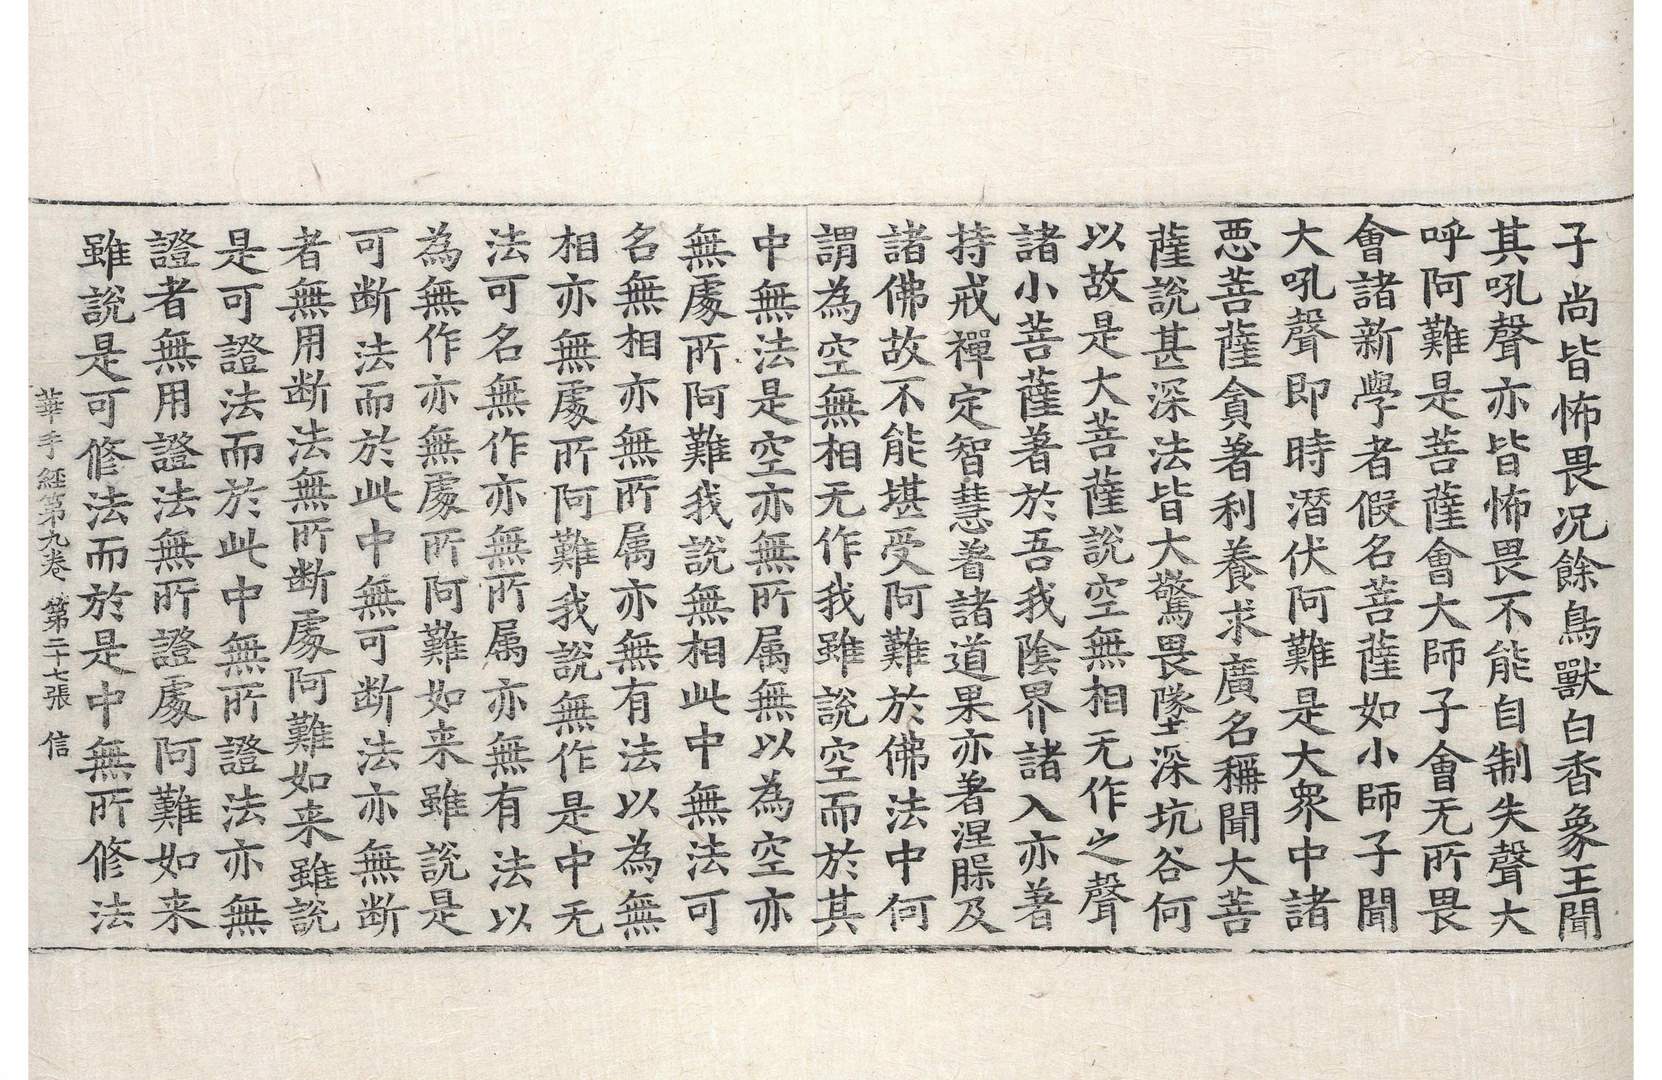 子尚皆怖畏況餘鳥獸白香象王聞
其吼聲亦皆怖畏不能自制失聲大
呼阿難是菩薩會大師子會无所畏
會諸新學者假名菩薩如小師子聞
大吼聲即時潛伏阿難是大衆中諸
悪菩薩貪著利養求廣名稱聞大菩
薩說甚深法皆大驚畏墜深坑谷何
以故是大菩薩說空無相无作之聲
諸小菩薩著於吾我陰界諸入亦著
持戒禪定智慧著諸道果亦著涅槃及
諸佛故不能堪受阿難於佛法中何
謂為空無相无作我雖說空而於其
中無法是空亦無所属無以為空亦
無處所阿難我說無相此中無法可
名無相亦無所属亦無有法以為無
相亦無處所阿難我說無作是中无
法可名無作亦無所属亦無有法以
為無作亦無處所阿難如来雖說是
可断法而於此中無可断法亦無断
者無用断法無所断處阿難如来雖說
是可證法而於此中無所證法亦無
證者無用證法無所證處阿難如来
雖說是可修法而於是中無所修法
華手経第九卷 第二十七張 信